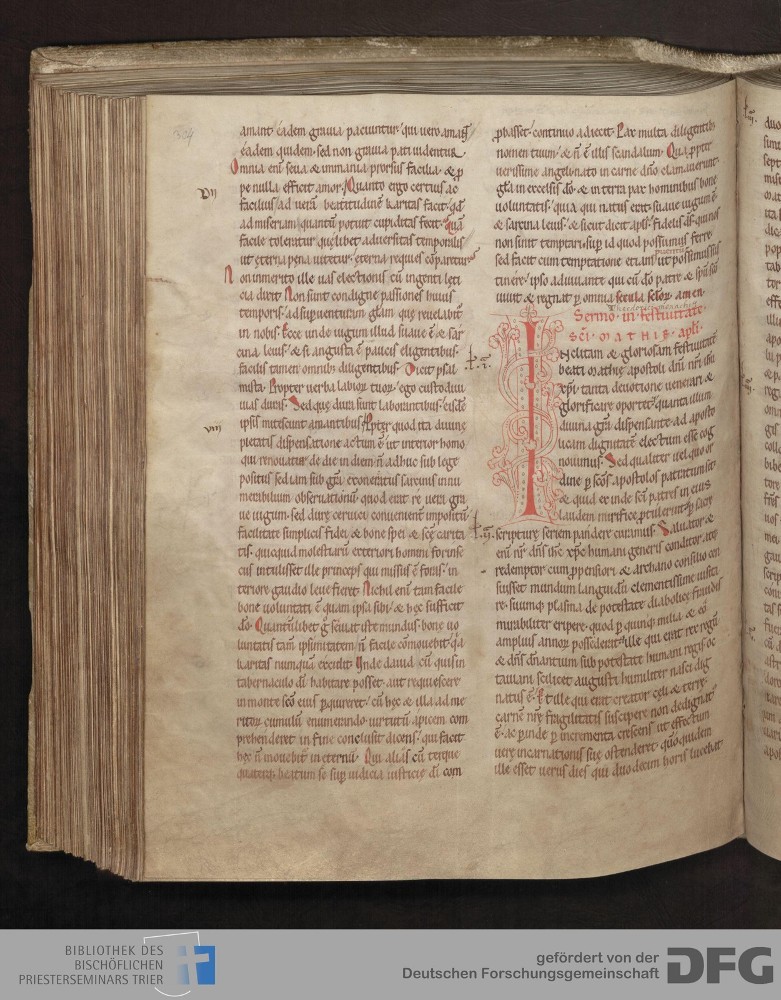 amant eadem gravia patiuntur. qui vero amant
eadem quidem. sed non gravia pati videntur.
Omnia eni seva & immania prorsus facilia & ꝓ
pe nulla efficit amor. Quanto ergo certius ac
VII
facilius ad vera beatitudine karitas facit. qd
ad miseriam quantu potuit cupiditas fecit. Qua
facile toleratur quelibet adversitas temporalis
ut eterna pena vitetur. eterna requies coparetur.
Non inmerito ille vas electionis cu ingenti leti
cia dixit. Non sunt condigne passiones huius
temporis. ad supventuram glam que revelabit
in nobis. Ecce unde iugum illud suave e & sar
cina levis. & si angusta e paucis eligentibus.
facilis tamen omnibus diligentibus. Dicit psal
mista. Propter verba labior tuor. ego custodivi
vias duras. Sed que dura sunt laborantibus. eisde
VIII
ipsis mitescunt amantibus. Ppter quod ita divine
pietatis dispensatione actum e ut interior homo
qui renovatur de die in diem n adhuc sub lege
positus sed iam sub gra exoneratus sarcinis innu
merabilium observationu quod erat re vera gra
ve iugum. sed dure cervici convenient impositu
facilitate simplicis fidei & bone spei & sce carita
tis. quicquid molestiaru exteriori homini forinse
cus intulisset ille princeps qui missus e foras. in
teriore gaudio leve fieret. Nichil eni tam facile
bone voluntati e quam ipsa sibi. & hec sufficit
do. Quantulibet g seviat iste mundus. bone vo
luntatis tam ipsunitatem n facile comovebit. qa
karitas numqua excidit. Unde david cu quis in
tabernaculo di habitare posset. aut requiescere
in monte sco eius pquireret. cu hec & illa ad me
ritor cumulu enumerando virtutu apicem com
prehenderet in fine conclusit dicens. qui facit
hec n movebit in eternu. Qui alias cu terque
quaterq beatum se sup iudicia iusticie di com
ꝓbasset. continuo adiecit. Pax multa diligentib
nomen tuum. & n e illis scandalum. Qua ppter
verissime angeli nato in carne dno clamaverunt.
gla in excelsis do. & in terra pax hominibus bone
voluntatis. quia qui natus erat. suave iugum e
& sarcina levis. & sicut dicit apls. fidelis ds. qui nos
non sinit temptari sup id quod possumus ferre.
sed facit cum temptatione etiam ut possimus sus
tinere. ipso adiuvante qui cu do patre & spu sco
vivit & regnat p omnia secula sclor. amen.
Sermo in festivitate.
sci mathie apli.
Inclitam & gloriosam festivitate
beati Mathie apostoli dni nri ihu
xpi. tanta devotione venerari &
glorificare oportet. quanta illum
divina gra dispensante. ad aposto
licam dignitate electum esse cog
novimus. Sed qualiter vel quo or
dine p scos apostolos patratum sit.
& quid exinde sci patres in eius
laudem mirifice ptulerint. p sacre
scripture seriem pandere curamus. Salvator &
eni nr dns ihc xpc humani generis conditor atq
redemptor cum ppensiori & archano consilio con
siuisset mundum languidu clementissime visita
re. suumq plasma de potestate diabolice fraudis
mirabiliter eripere. quod p quinq milia & eo
amplius annor possederat. ille qui erat rex regu
& dns dnantium sub potestate humani regis oc
taviani scilicet augusti humiliter nasci dig
natus e. Et ille qui erat creator celi & terre.
carne nre fragilitatis suscipere non dedignat
e. ac pinde p incrementa crescens ut effectum
vere incarnationis sue ostenderet. quo quidem
ille esset verus dies qui duodecim horis lucebat
BIBLIOTHEK DES
BISCHÖFLICHEN
PRIESTERSEMINARS TRIER
gefördert von der
Deutschen Forschungsgemeinschaft
DFG